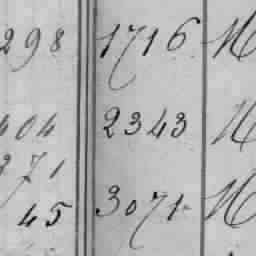 298 1716 N
404 2343 N
371
45 3071 N